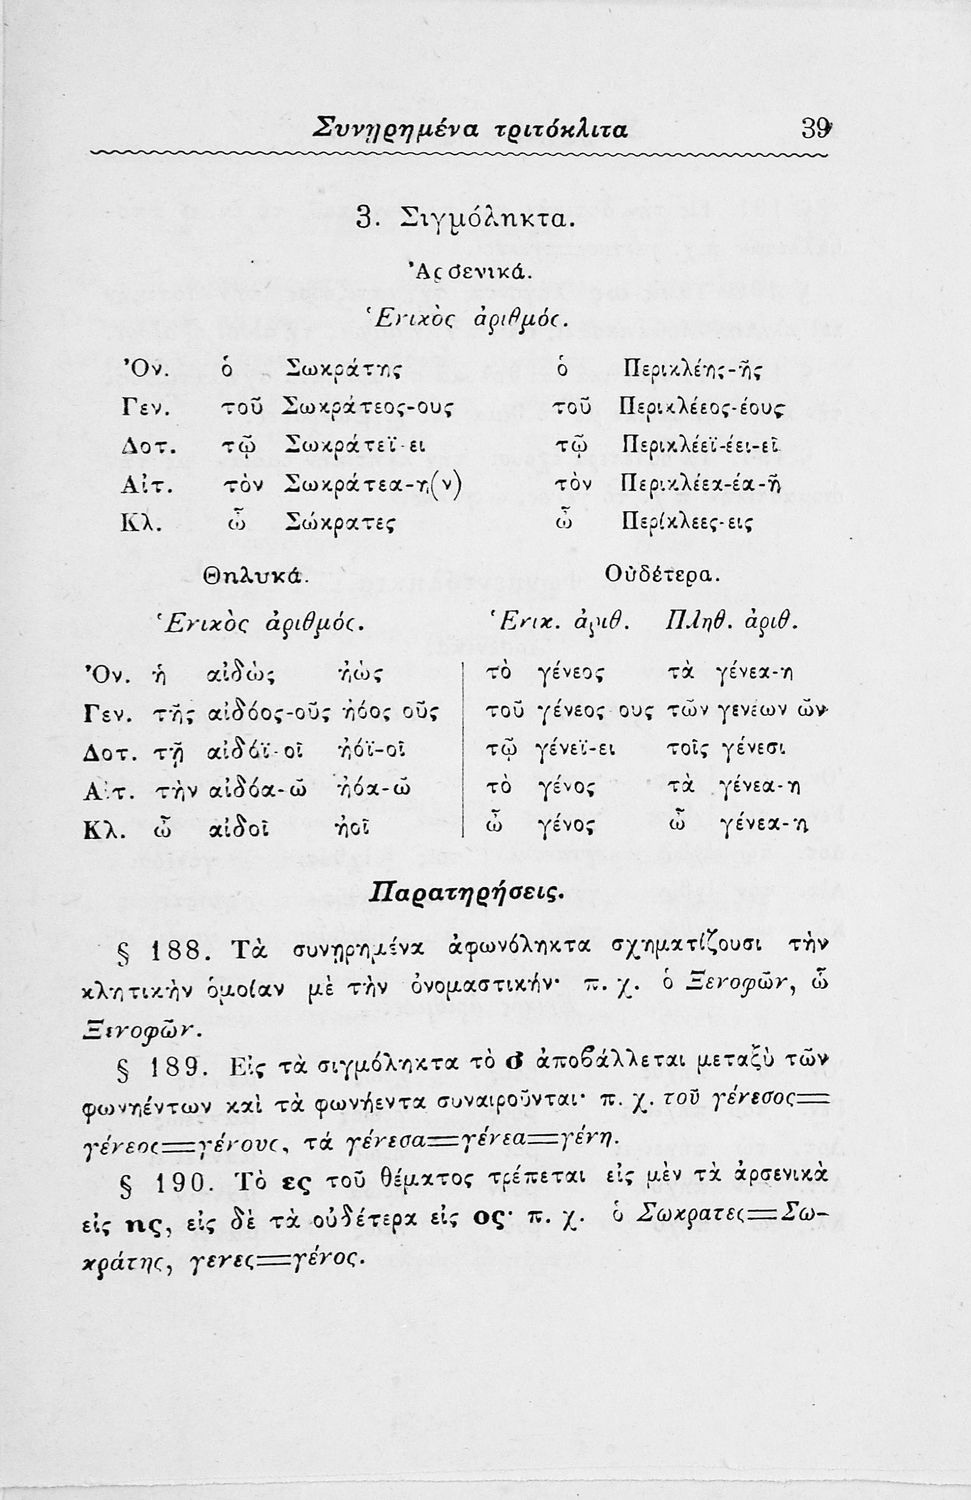 Συνῃρημένα τριτόκλιτα 39
3. Σιγμόληκτα.
Ἀρσενικά.
Ἑνικὸς ἀριθμός.
Ὀν. ὁ Σωκράτης ὁ Περικλέης-ῆς
Γεν. τοῦ Σωκράτεος-ους τοῦ Περικλέεος-έους
Δοτ. τῷ Σωκράτεϊ-ει τῷ Περικλέεϊ-έει-εῖ
Αἰτ. τὸν Σωκράτεα-η(ν) τὸν Περικλέεα-έα-ῆ
Κλ. ὦ Σώκρατες ὦ Περίκλεες-εις
Θηλυκά. Οὐδέτερα.
Ἑνικὸς ἀριθμός. Ἑνικ. ἀριθ. Πληθ. ἀριθ.
Ὀν. ἡ αἰδὼς ἠὼς τὸ γένεος τὰ γένεα-η
Γεν. τῆς αἰδόος-οῦς ἠόος οῦς τοῦ γένεος ους τῶν γενέων ῶν
Δοτ. τῇ αἰδόϊ-οῖ ἠόϊ-οῖ τῷ γένεϊ-ει τοῖς γένεσι
Αἰτ. τὴν αἰδόα-ῶ ἠόα-ῶ τὸ γένος τὰ γένεα-η
Κλ. ὦ αἰδοῖ ἠοῖ ὦ γένος ὦ γένεα-η
Παρατηρήσεις.
§ 188. Τὰ συνῃρημένα ἀφωνόληκτα σχηματίζουσι τὴν
κλητικὴν ὁμοίαν μὲ τὴν ὀνομαστικήν· π. χ. ὁ Ξενοφῶν, ὦ
Ξενοφῶν.
§ 189. Εἰς τὰ σιγμόληκτα τὸ σ ἀποβάλλεται μεταξὺ τῶν
φωνηέντων καὶ τὰ φωνήεντα συναιροῦνται· π. χ. τοῦ γένεσος=
γένεος=γένους, τά γένεσα=γένεα=γένη.
§ 190. Τὸ ες τοῦ θέματος τρέπεται εἰς μὲν τὰ ἀρσενικὰ
εἰς ης, εἰς δὲ τὰ οὐδέτερα εἰς ος· π. χ. ὁ Σωκρατες=Σω-
κράτης, γενες=γένος.